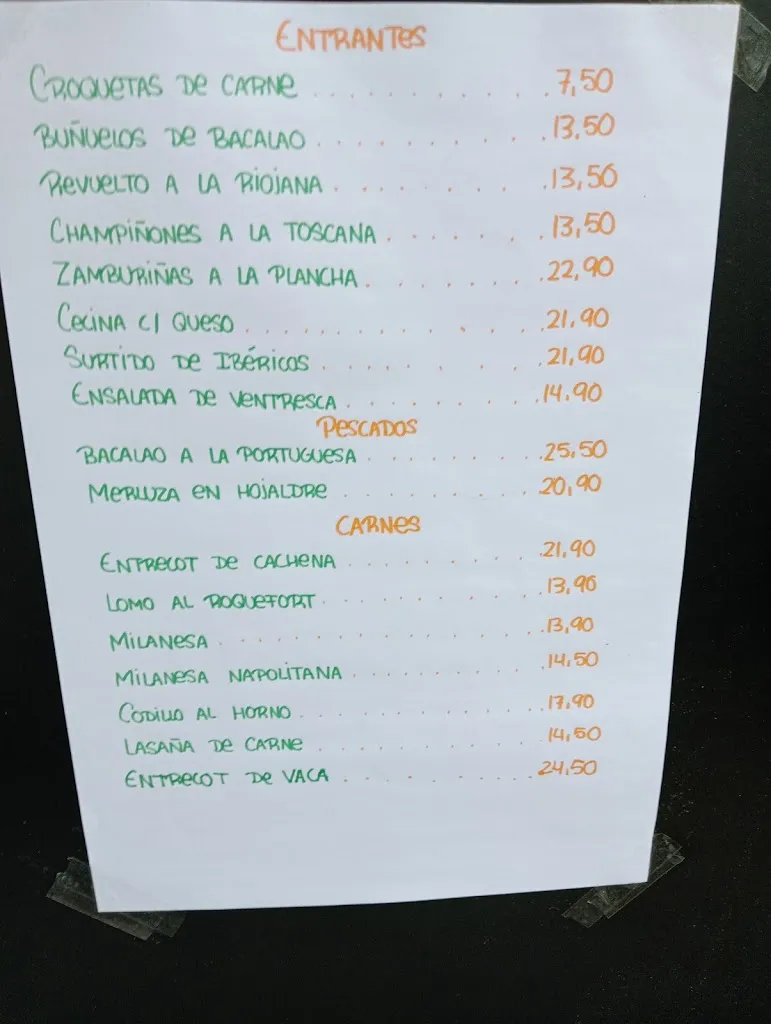 ENTRANTES
CROQUETAS DE CARNE . . . . . . . . . . 7,50
BUÑUELOS DE BACALAO . . . . . . . . . 13,50
REVUELTO A LA RIOJANA . . . . . . . . 13,50
CHAMPIÑONES A LA TOSCANA . . . . . . . 13,50
ZAMBURIÑAS A LA PLANCHA . . . . . . . 22,90
CECINA C/ QUESO . . . . . . . . . . . 21,90
SURTIDO DE IBÉRICOS . . . . . . . . . 21,90
ENSALADA DE VENTRESCA . . . . . . . . 14,90
PESCADOS
BACALAO A LA PORTUGUESA . . . . . . . 25,50
MERLUZA EN HOJALDRE . . . . . . . . . 20,90
CARNES
ENTRECOT DE CACHENA . . . . . . . . . 21,90
LOMO AL ROQUEFORT . . . . . . . . . . 13,90
MILANESA . . . . . . . . . . . . . . 13,90
MILANESA NAPOLITANA . . . . . . . . . 14,50
CODILLO AL HORNO . . . . . . . . . . 17,90
LASAÑA DE CARNE . . . . . . . . . . . 14,50
ENTRECOT DE VACA . . . . . . . . . . 24,50